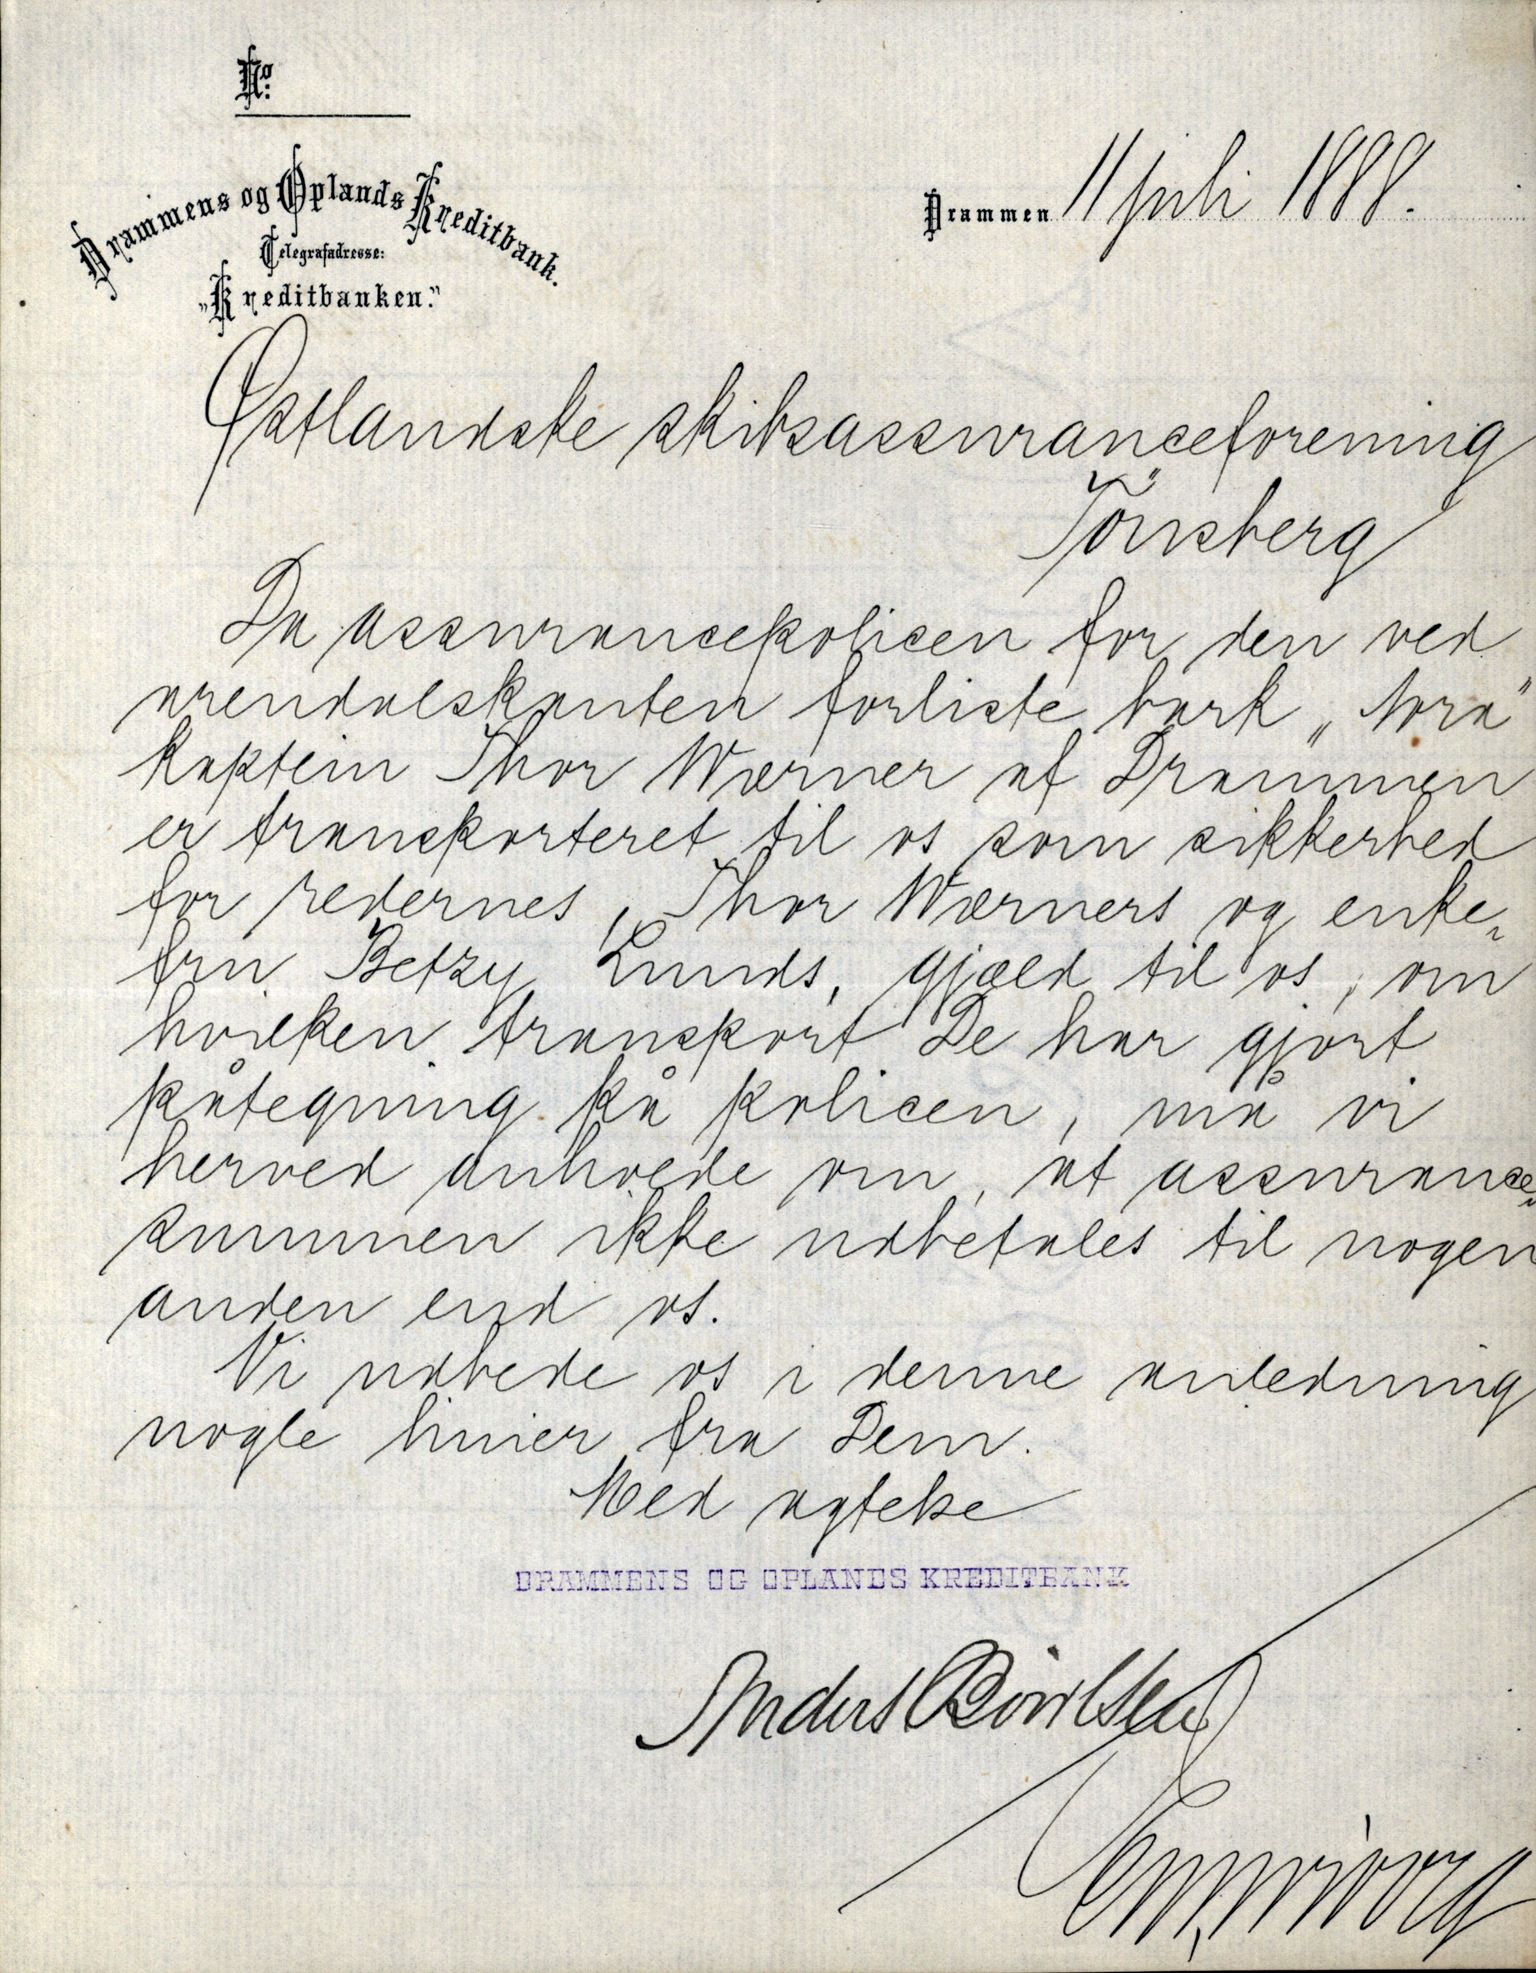 No.
Drammens og Oplands Kreditbank.
Telegrafadresse:
„Kreditbanken."
Drammen 11 juli 1888.
Østlandske skibsassuranceforening
Tönsberg
Da assurancepolicen for den ved
arendalskanten forliste bark „Nora"
kaptein Thor Wærner af Drammen
er transporteret til os som sikkerhed
for redernes, Thor Wærners og enke-
fru Betzy Lunds, gjæld til os, om
hvilken transport De har gjort
påtegning på policen, må vi
herved anholde om, at assurance-
summen ikke udbetales til nogen
anden end os.
Vi udbede os i denne anledning
nogle linier fra Dem.
Med agtelse
DRAMMENS OG OPLANDS KREDITBANK
Anders